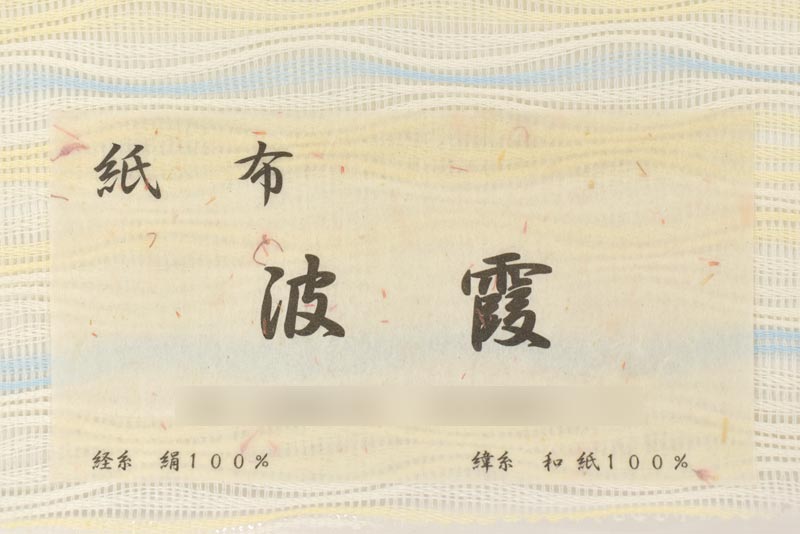 紙布
波霞
経糸 絹100% 緯糸 和紙100%